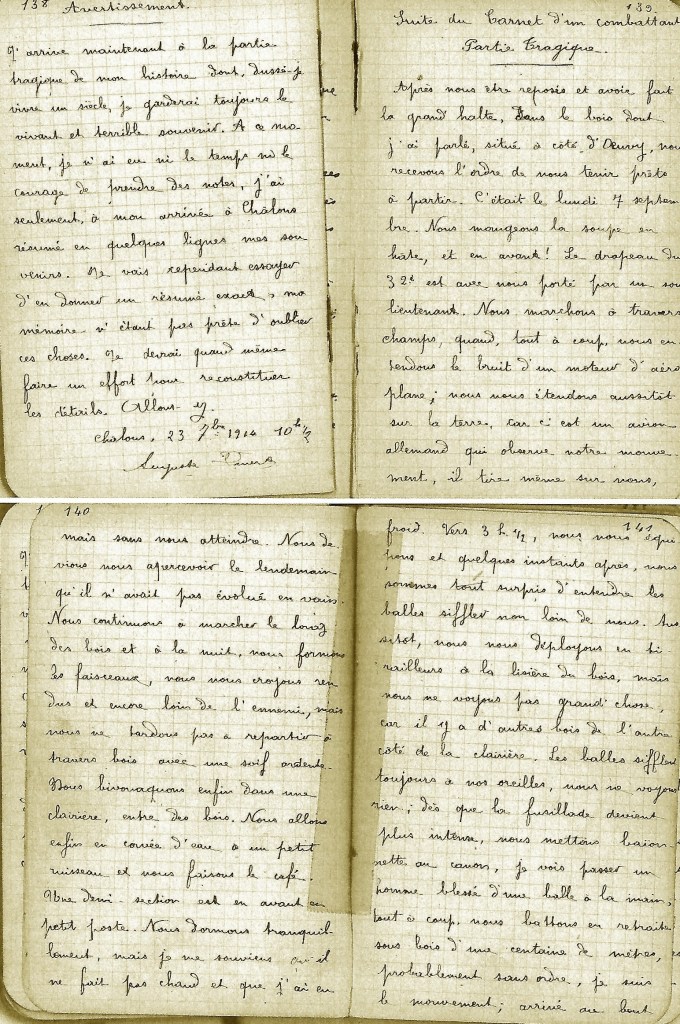 138
Avertissement.
J'arrive maintenant à la partie
tragique de mon histoire dont, dussé-je
vivre un siècle, je garderai toujours le
vivant et terrible souvenir. A ce mo-
ment, je n'ai eu ni le temps ni le
courage de prendre des notes, j'ai
seulement, à mon arrivée à Châlons
résumé en quelques lignes mes sou
venirs. Je vais cependant essayer
d'en donner un résumé exact, ma
mémoire n'étant pas prête d'oublier
ces choses. Je devrai quand même
faire un effort pour reconstituer
les détails. Allons-y.
Chalons, 23 7bre 1914 10h 1/2
Auguste
139.
Suite du Carnet d'un combattant
Partie Tragique.
Après nous être reposés et avoir fait
la grand halte, dans le bois dont
j'ai parlé, situé à côté d'Œuvy, nou
recevons l'ordre de nous tenir prêts
à partir. C'était le lundi 7 septem
bre. Nous mangeons la soupe en
hâte, et en avant! Le drapeau du
32e est avec nous porté par un sou
lieutenant. Nous marchons à travers
champs, quand, tout à coup, nous en
tendons le bruit d'un moteur d'aéro
plane; nous nous étendons aussitôt
sur la terre, car c'est un avion
allemand qui observe notre mouve-
ment, il tire même sur nous,
140
mais sans nous atteindre. Nous de
vions nous apercevoir le lendemain
qu'il n'avait pas évolué en vain.
Nous continuons à marcher le long
des bois et à la nuit, nous formons
les faisceaux, nous nous croyons ren
dus et encore loin de l'ennemi, mais
nous ne tardons pas à repartir à
travers bois avec une soif ardente.
Nous bivouaquons enfin dans une
clairière, entre des bois. Nous allons
enfin en corvée d'eau à un petit
ruisseau et nous faisons le café.
Une demi-section est en avant en
petit poste. Nous dormons tranquil-
lement, mais je me souviens qu'il
ne fait pas chaud et que j'ai eu
141
froid. Vers 3 h. 1/2, nous nous équi
pons et quelques instants après, nous
sommes tout surpris d'entendre les
balles siffler non loin de nous. Aus
sitôt, nous nous déployons en ti
railleurs à la lisière du bois, mais
nous ne voyons pas grand'chose,
car il y a d'autres bois de l'autre
côté de la clairière. Les balles sifflent
toujours à nos oreilles, nous ne voyons
rien; dès que la fusillade devient
plus intense, nous mettons baïon-
nette au canon, je vois passer un
homme blessé d'une balle à la main,
tout à coup, nous battons en retraite
sous bois d'une centaine de mètres,
probablement sans ordre, je suis
le mouvement; arrivé au bout